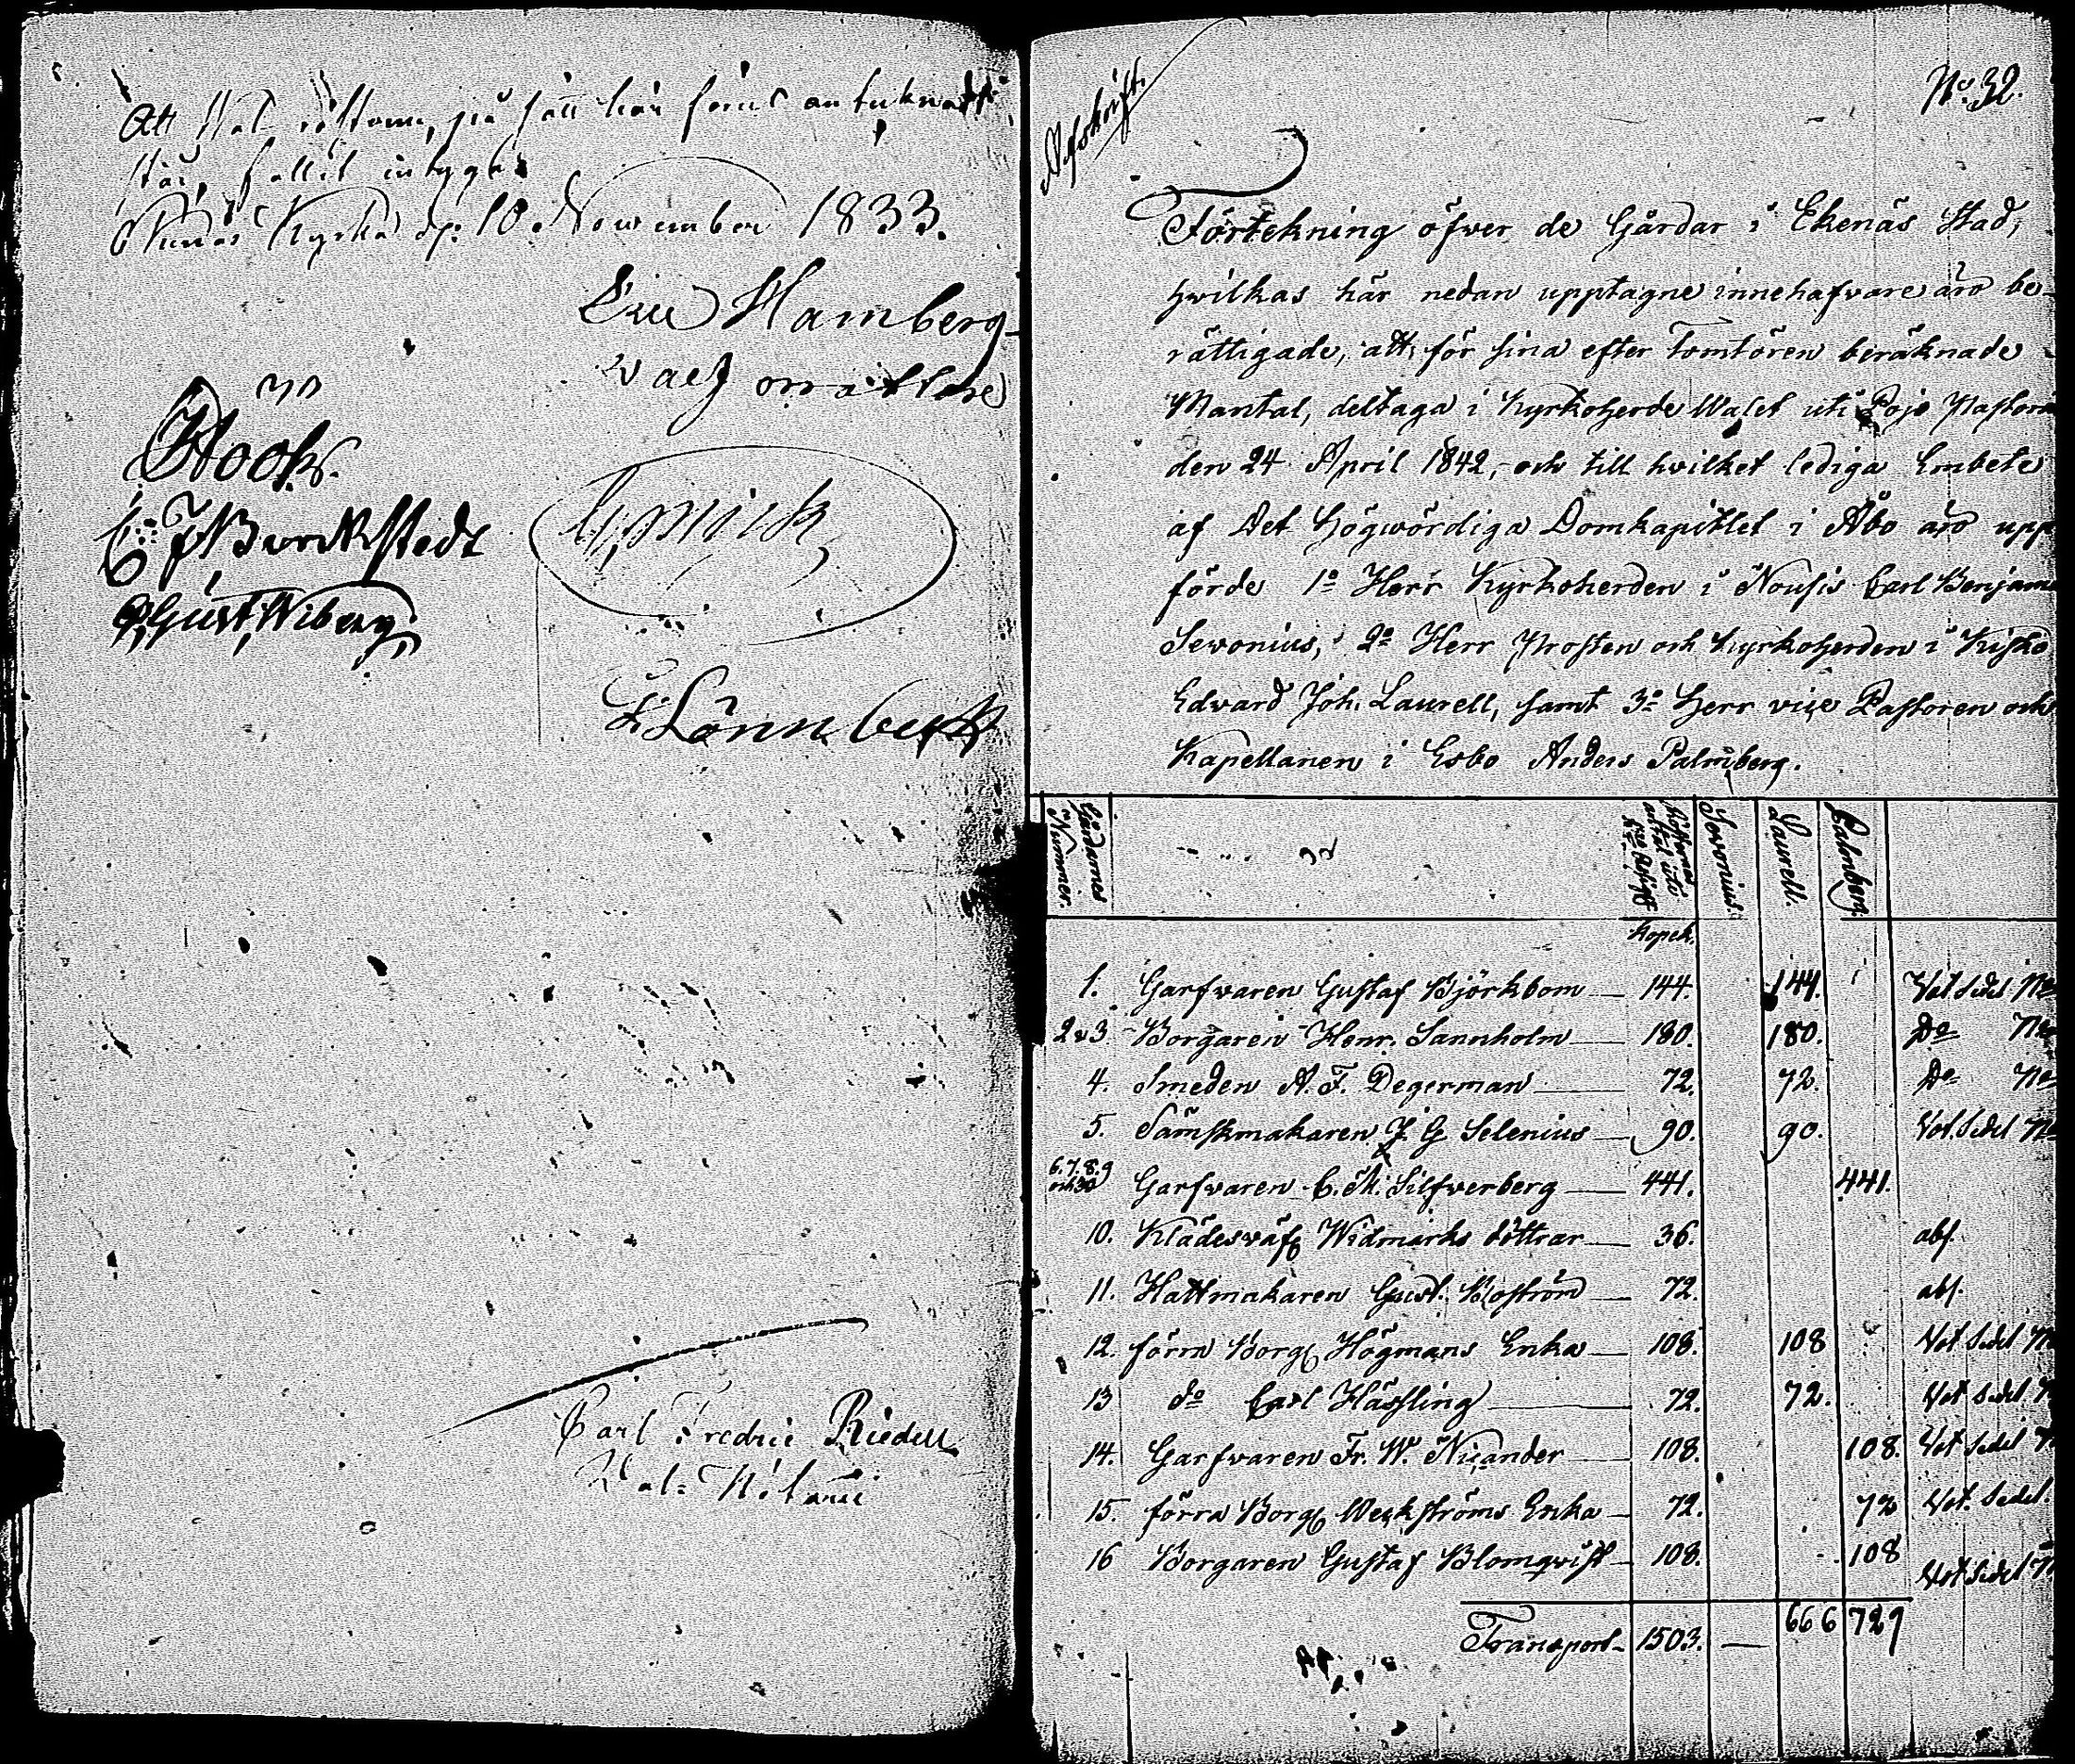 Att Val rösterna, på sätt här förut antecknadt
står, fallit intygar
Kyrka d: 10 November 1833.
Eric Hamberg
Höök
Gust. Wiberg
Lönnbeck
Carl Fredric Riedell
Val-Notarie
Afskrift
No. 32.
Förtekning öfver de Gårdar i Ekenäs Stad,
hvilkas här nedan upptagne innehafvare äro be-
rättigade, att för sina efter Tomtören beräknade
Mantal, deltaga i Kyrkoherde Walet uti Pojo Pastorat
den 24 April 1842, och till hvilket lediga Embete
af Det Högwördiga Domkapitlet i Åbo äro upp
förde 1o Herr Kyrkoherden i Nousis Carl Benjam
Sevonius, 2o Herr Prosten och Kyrkoherden i Kisko
Edvard Joh. Laurell, samt 3o Herr vice Pastoren och
Kapellanen i Esbo Anders Palmberg.
Gårdarnes Nummer. Sevonius. Laurell. Palmberg.
Kopek.
1. Garfvaren Gustaf Björkbom 144. 144. Vot Sedel No
2 o 3 Borgaren Henr. Sannholm 180. 180. Do No
4. Smeden A. F. Degerman 72. 72. Do No
5. Sämskmakaren J. G. Selenius 90. 90. Vot. Sedel No
6. 7. 8. 9 och 30 Garfvaren C. M. Silfverberg 441. 441.
10. Klädesväfv Widmarks döttrar 36. abs.
11. Hattmakaren Gust. Boström 72. abs.
12. förra Borg Högmans Enka 108. 108 Vot Sedel No
13 do Carl Hässling 72. 72. Vot Sedel N
14. Garfvaren Fr. W. Nicander 108. 108. Vot Sedel N
15. förra Borg Weckströms Enka 72. 72 Vot. Sedel.
16 Borgaren Gustaf Blomqvist 108. 108 Vot Sedel N
Transport 1503. — 666 729